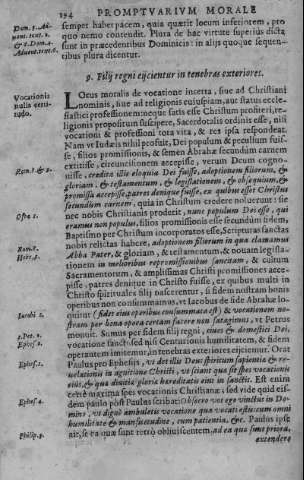 194 PROMPTVARIVM MORALE
Dom. 3. Ad-
uent. text. 2.
& 4. Dom. 4.
Aduent. text. 6.
semper habet pacem, quia quærit locum inferiorem, pro
quo nemo contendit. Plura de hac virtute superius dicta
sunt in præcedentibus Dominicis: in alijs quoque sequen-
tibus plura dicentur.
9. Filij regni eijcientur in tenebras exteriores.
Vocationis
nulla certi-
tudo.
LOcus moralis de vocatione incerta, siue ad Christiani
nominis, siue ad religionis cuiuspiam, aut status eccle-
siastici professionem: neque satis esse Christum profiteri, re-
ligionis propositum suscepisse, Sacerdotalis ordinis esse, nisi
vocationi & professioni tota vita, & res ipsa respondeat.
Nam vt Iudæis nihil profuit, Dei populum & peculium fuis-
se, filios promissionis, & semen Abrahæ secundum carnem
extitisse, circuncisionem accepisse, verum Deum cogno-
Rom. 3. & 9.
uisse, credita illis eloquia Dei fuisse, adoptionem filiorum, &
gloriam & testamentum, & legislationem, & obsequium, &
promissa accepisse, patres denique fuisse, ex quibus esset Christus
secundum carnem, quia in Christum credere noluerunt: sic
Osee 2.
nec nobis Christianis proderit, nunc populum Dei esse, qui
eramus non populus, filios promissionis esse secundum fidem,
Baptismo per Christum incorporatos esse, Scripturas sanctas
Rom. 8.
nobis relictas habere, adoptionem filiorum in qua clamamus
Hebr. 8.
Abba Pater, & gloriam, & testamentum, & nouam legisla-
tionem in melioribus repromissionibus sancitam, & cultum
Sacramentorum, & amplissimas Christi promissiones acce-
pisse, patres denique in Christo fuisse, ex quibus multi in
Christo spirituales filij nascerentur, si fidem nostram bonis
operibus non consummamus, vt Iacobus de fide Abrahæ lo-
Iacobi 2.
quitur (fides eius operibus consummata est) & vocationem no-
stram per bona opera certam facere non satagimus, vt Petrus
2. Pet. 1.
monuit. Simus per fidem filij regni, ciues & domestici Dei,
Ephes. 2.
vocatione sancti: sed nisi Centurionis humilitatem, & fidem
operantem imitemur, in tenebras exteriores eijciemur. Orat
Ephes. 1.
Paulus pro Ephesijs, vt det illis Deus spiritum sapientiæ & re-
uelationis in agnitione Christi, vt sciant quæ sit spes vocationis
eius, & quæ diuitiæ gloriæ hereditatis eius in sanctis. Est enim
certè maxima spes vocationis Christianæ: sed vide quid eis-
Ephes. 4.
dem paulò pòst Paulus scribat: Obsecro vos ego vinctus in Do-
mino, vt dignè ambuletis vocatione qua vocati estis cum omni
humilitate & mansuetudine, cum patientia, &c. Paulus ipse
Philip. 3.
ait, se ea quæ sunt retrò obliuiscentem, ad ea quæ sunt priora,
extendere